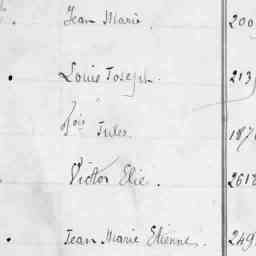 Jean Marie. 200
Louis Joseph. 213
Jules 187
Victor Elie. 2618
Jean Marie Etienne. 249